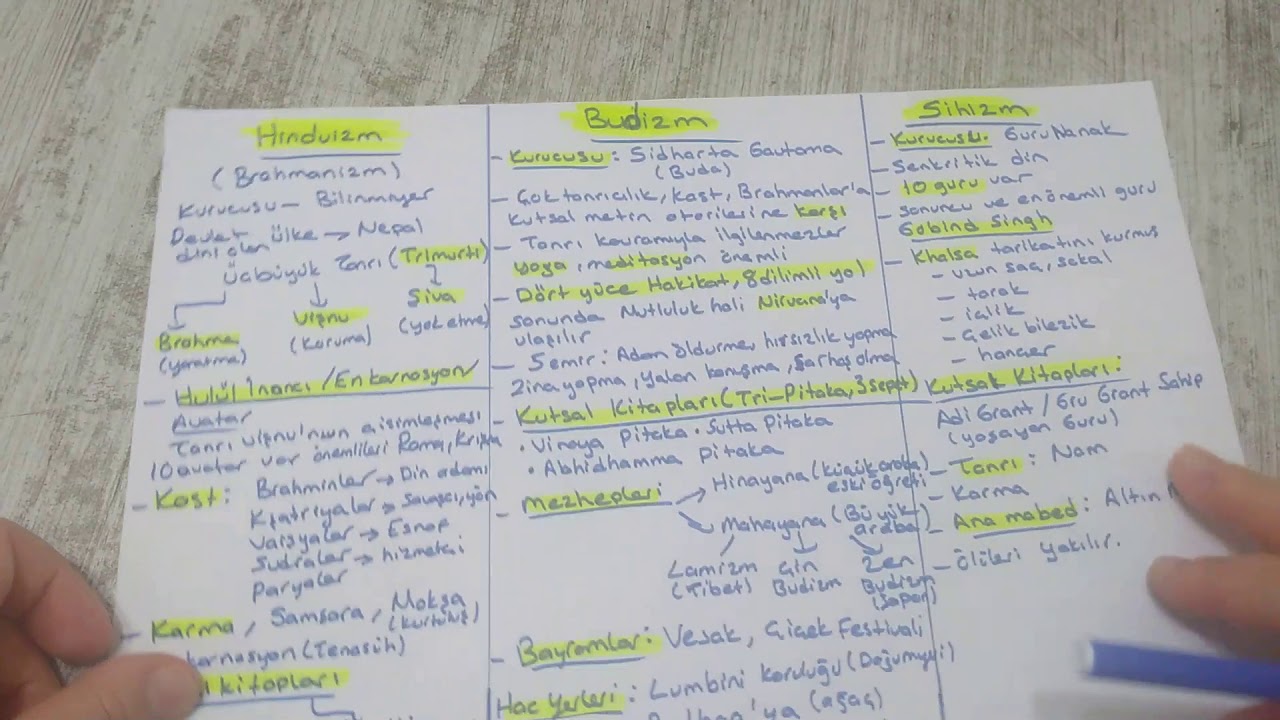 Hinduizm
(Brahmanizm)
Kurucusu - Bilinmiyor
Devlet ülke → Nepal
dini olan
Üç büyük Tanrı (Trimurti)
Brahma
(yaratma)
Vişnu
(Koruma)
Şiva
(yok etme)
- Hulül İnancı / Enkarnasyon
Avatar
Tanrı Vişnu'nun cisimleşmesi
10 avatar var önemlileri Rama, Krişna
- Kast: Brahminler → Din adamı
Kşatriyalar → Savaşçı, yön
Vaisyalar → Esnaf
Sudralar → hizmetçi
Paryalar
- Karma, Samsara, Mokşa
(kurtuluş)
karnasyon (Tenasüh)
kitapları
Budizm
- Kurucusu: Sidharta Gautama
(Buda)
- Çok tanrıcılık, Kast, Brahmanlar'a
kutsal metin otorilerine karşı
- Tanrı kavramıyla ilgilenmezler
yoga, meditasyon önemli
- Dört yüce Hakikat, 8 dilimli yol
sonunda Mutluluk hali Nirvana'ya
ulaşılır
- Semir: Adam öldürme, hırsızlık yapma
Zina yapma, Yalan konuşma, Sarhoş olma
- Kutsal Kitapları (Tri-Pitaka, 3 sepet)
• Vinaya Pitaka • Sutta Pitaka
• Abhidhamma pitaka
- Mezhepleri
Hinayana (küçük araba)
eski öğreti
Mahayana (Büyük
araba)
Lamizm
(Tibet)
Çin
Budizm
Zen
Budizm
(Japon)
- Bayramlar: Vesak, Çiçek Festivali
Hac Yerleri: Lumbini koruluğu (Doğum yeri)
(ağaç)
Sihizm
- Kurucusu: Guru Nanak
- Senkritik din
- 10 guru var
- sonuncu ve en önemli guru
Gobind Singh
- Khalsa tarikatını kurmuş
- uzun saç, sakal
- tarak
- içlik
- Çelik bilezik
- hançer
Kutsak Kitapları:
Adi Grant / Gru Grant Sahip
(yaşayan Guru)
- Tanrı: Nam
- Karma
- Ana mabed: Altın
- Ölüleri yakılır.